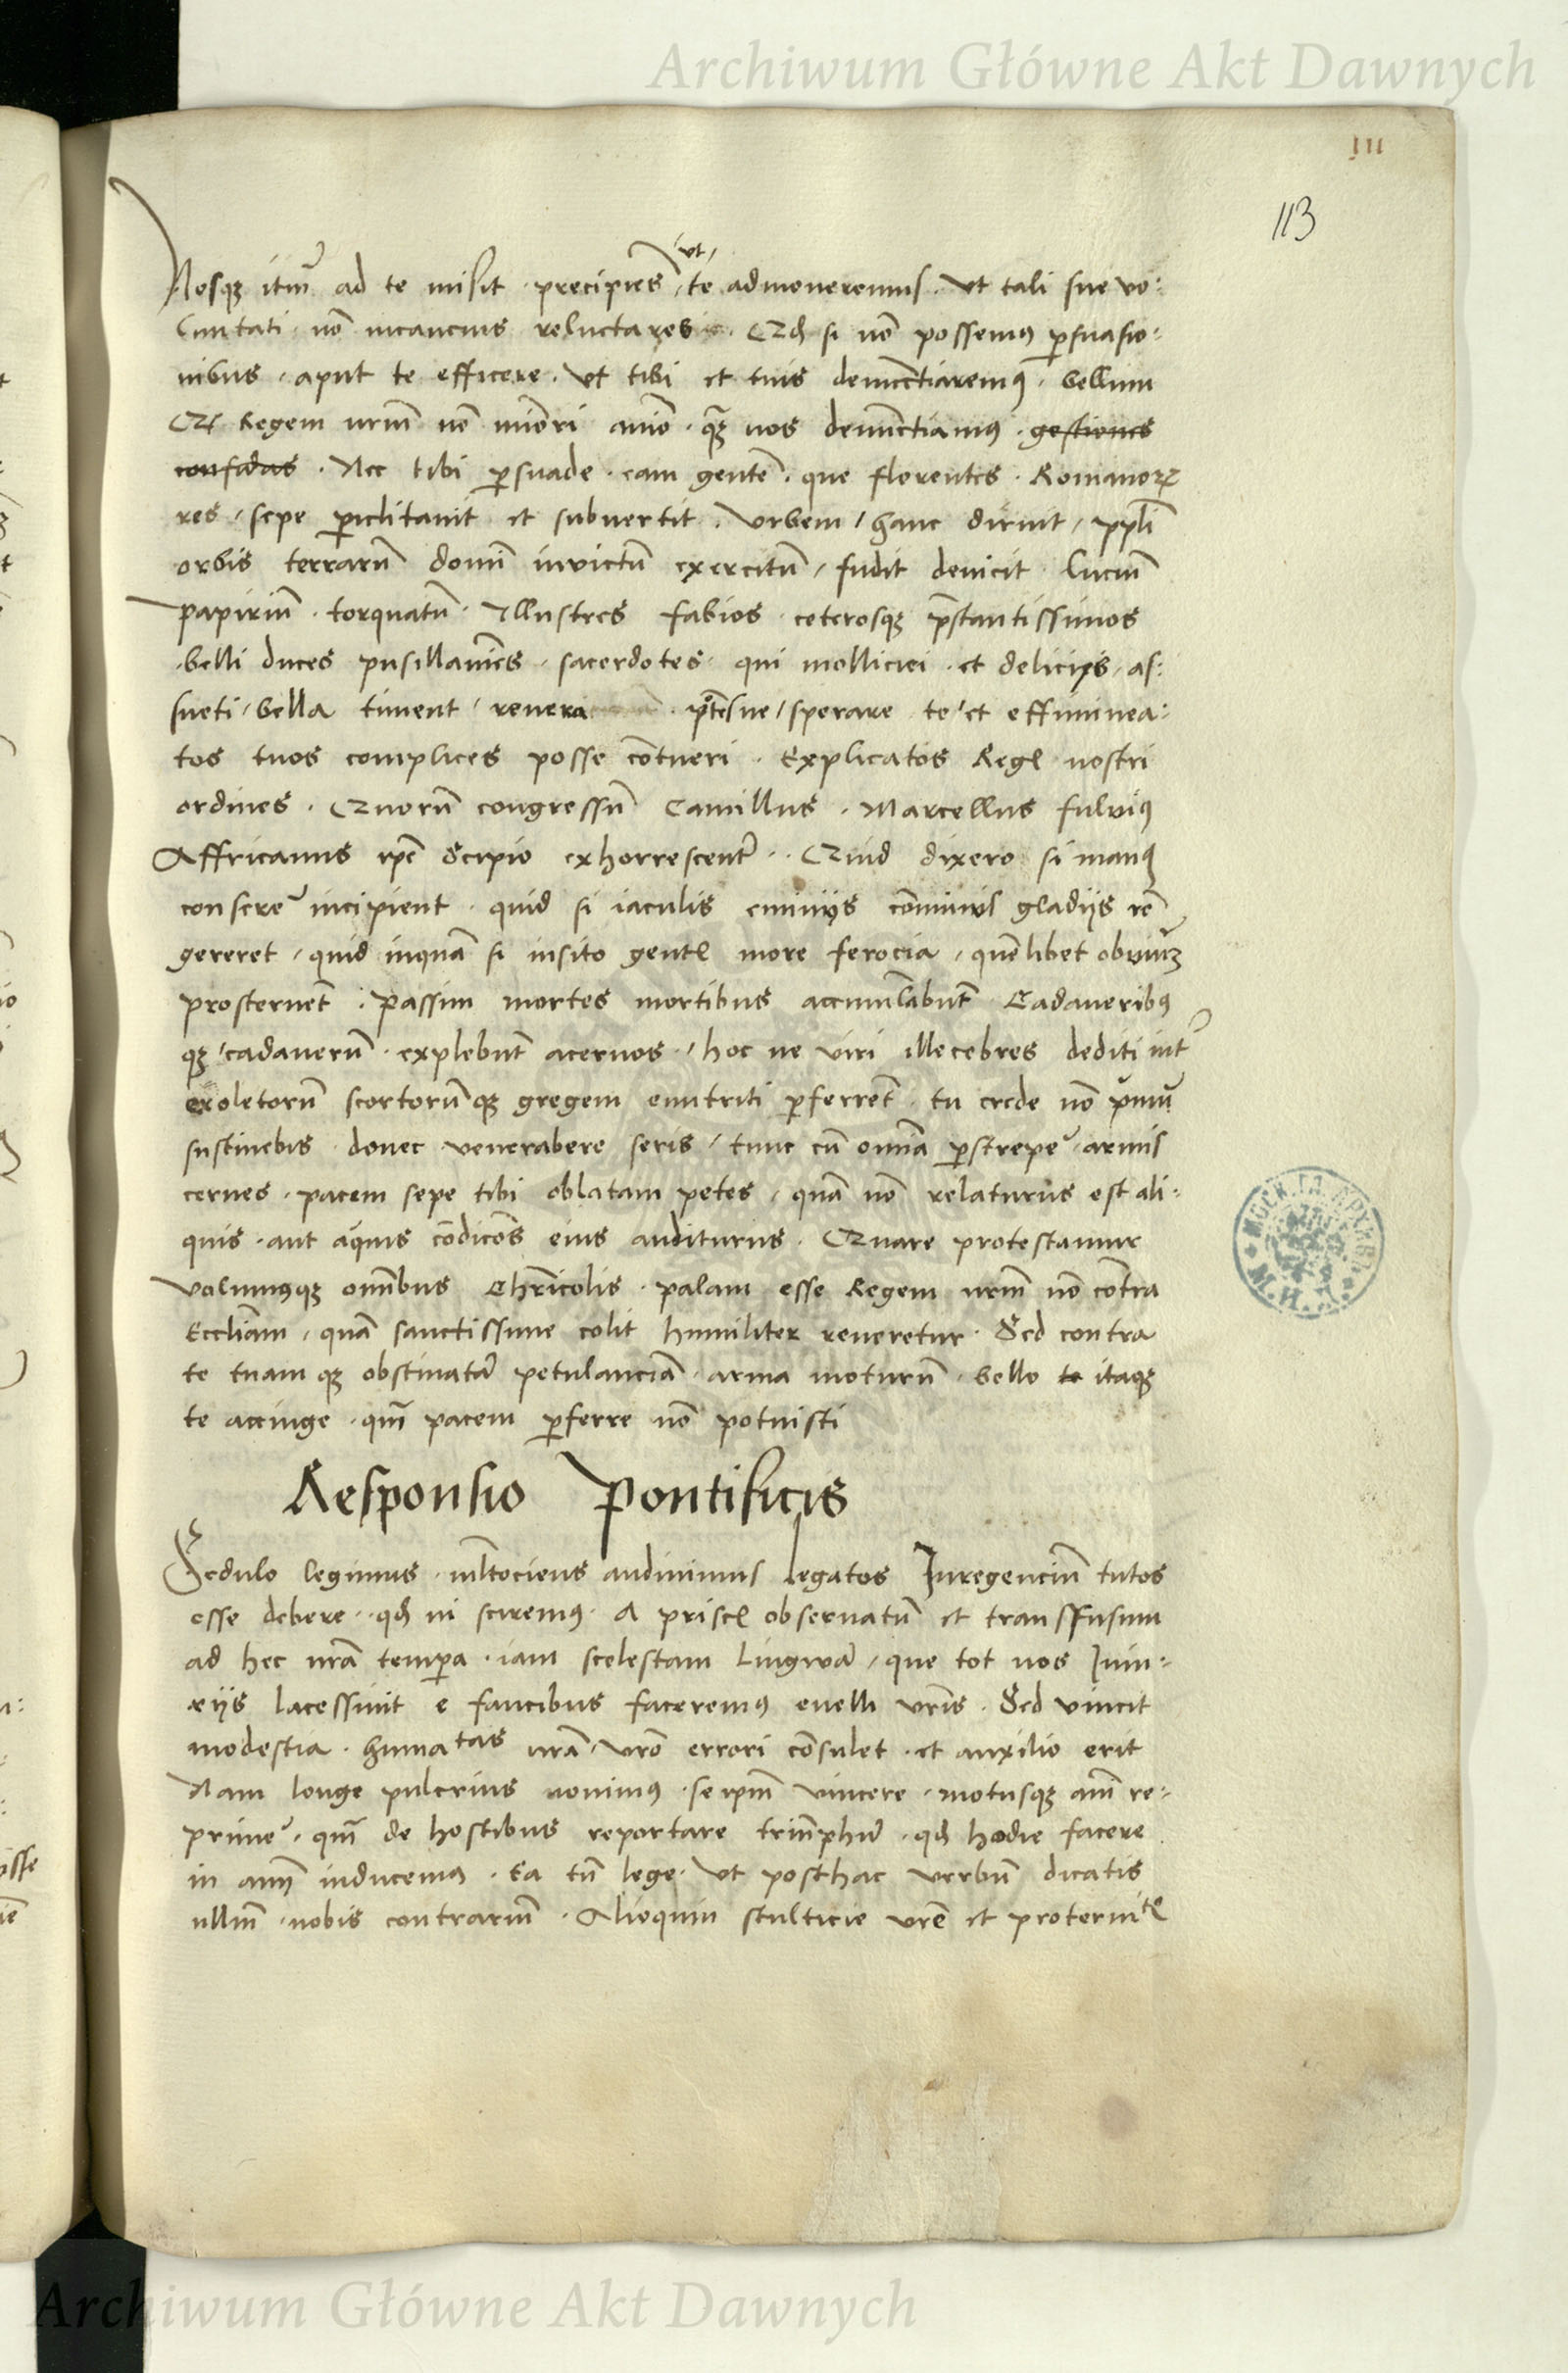 Archiwum Główne Akt Dawnych
III
113
ut
Nosqꝫ itm̃ ad te misit · precipiēs te admoneremus · Ut tali sue vo:
luntati · nō incancius reluctares · Qđ si nō possemꝯ ꝑsuasio:
nibus · aput te efficere · Ut tibi et tuis denūctiaremꝯ · bellum
Et Regem nrm̄ nō miōri aīo · qꝫ̄ nos denūctiamꝯ · gestiones
confidas · Nec tibi ꝑsuade · eam gentē · que florentes · Romanoꝝ
res / sepe ꝑiclitauit et subuertit · Urbem / hanc diruit / ppl̄i
orbis terrarū domī inuictū exercitū / fudit deuicit luciū
papiriū · torquatū · Illustres fabios · ceterosqꝫ p̄stantissimos
belli duces pusillanīes · sacerdotes · qui molliciei · et delicijs · as:
sueti / bella timent / reuera p̄tēsne / sperare te / et effiminea:
tos tuos complices posse cōtueri · Explicatos Regꝭ nostri
ordines · Quorū congressū Camillus · Marcellus fuluiꝯ
Affricanus ip̄e Scipio exhorrescent · · Quid dixero si manꝯ
conserē incipient · quid si iaculis eminus cōminus gladijs rē
gereret / quid inquā si insito gentꝭ more ferocia / quēlibet obuiū
prosternēt · passim mortes mortibus accumulabūt Cadaueribꝯ
qꝫ / cadauerū · explebūt aceruos · / hoc ne viri illecebres dediti int
exoletorū scortorūqꝫ gregem enutriti ꝑferrēt · tu crede nō
sustinebis · donec venerabere seris / tunc cū omīa ꝑstrepē armis
cernes · pacem sepe tibi oblatam petes / quā nō relaturus est ali:
quis · aut condicōs eius auditurus · Quare protestamur
volumusqꝫ omībus Chr̄icolis · palam esse Regem nrm̄ nō cōtra
Eccl̄iam / quā sanctissime colit humiliter reueretur · Sed contra
te tuam qꝫ obstinatā petulanciā · arma moturū · bello te itaqꝫ
te accinge · qm̄ pacem ꝑferre nō potuisti
Responsio Pontificis
Sedulo legimus · ml̄tociens audiuimus legatos Inregenciū tutos
esse debere · qđ ni sciremꝯ · A priscꝭ obseruatū et transfusum
ad hec nrā tempꝑa · iam scelestam Lingwā / que tot nos Iniu:
rijs lacessiuit e faucibus faceremꝯ euelli vrīs · Sed vincit
modestia · humatas nrā / vrō errori cōsulet · et auxilio erit
Nam longe pulcrius nouimꝯ · se ipm̄ vincere · motusqꝫ aīi re:
primē · qm̄ de hostibus reportare triūphū · qđ hodie facere
in aīm inducemꝯ · Ea tn̄ lege · Ut posthac verbū dicatis
ullū · nobis contrariū · Alioquin stulticie vrē et proteruitꝭ
Archiwum Główne Akt Dawnych